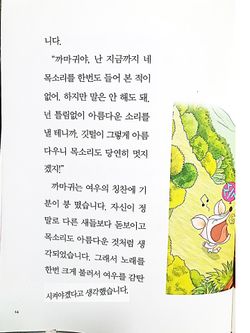 니다.
"까마귀야, 난 지금까지 네
목소리를 한번도 들어 본 적이
없어. 하지만 말은 안 해도 돼.
넌 틀림없이 아름다운 소리를
낼 테니까. 깃털이 그렇게 아름
다우니 목소리도 당연히 멋지
겠지!"
까마귀는 여우의 칭찬에 기
분이 붕 떴습니다. 자신이 정
말로 다른 새들보다 돋보이고
목소리도 아름다운 것처럼 생
각되었습니다. 그래서 노래를
한번 크게 불러서 여우를 감탄
시켜야겠다고 생각했습니다.
14